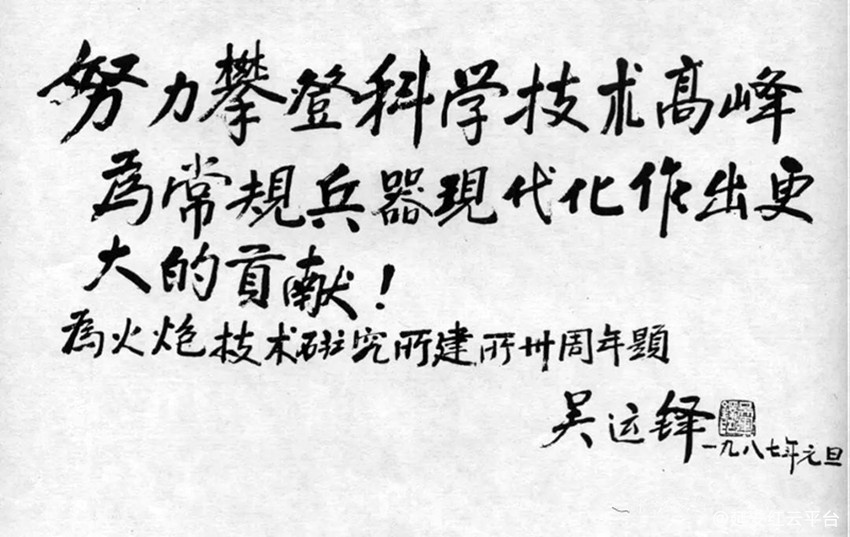 努力攀登科学技术高峰
為常規兵器現代化作出更
大的贡献！
為火炮技术研究所建所卅周年題
吴运铎
一九八七年元旦